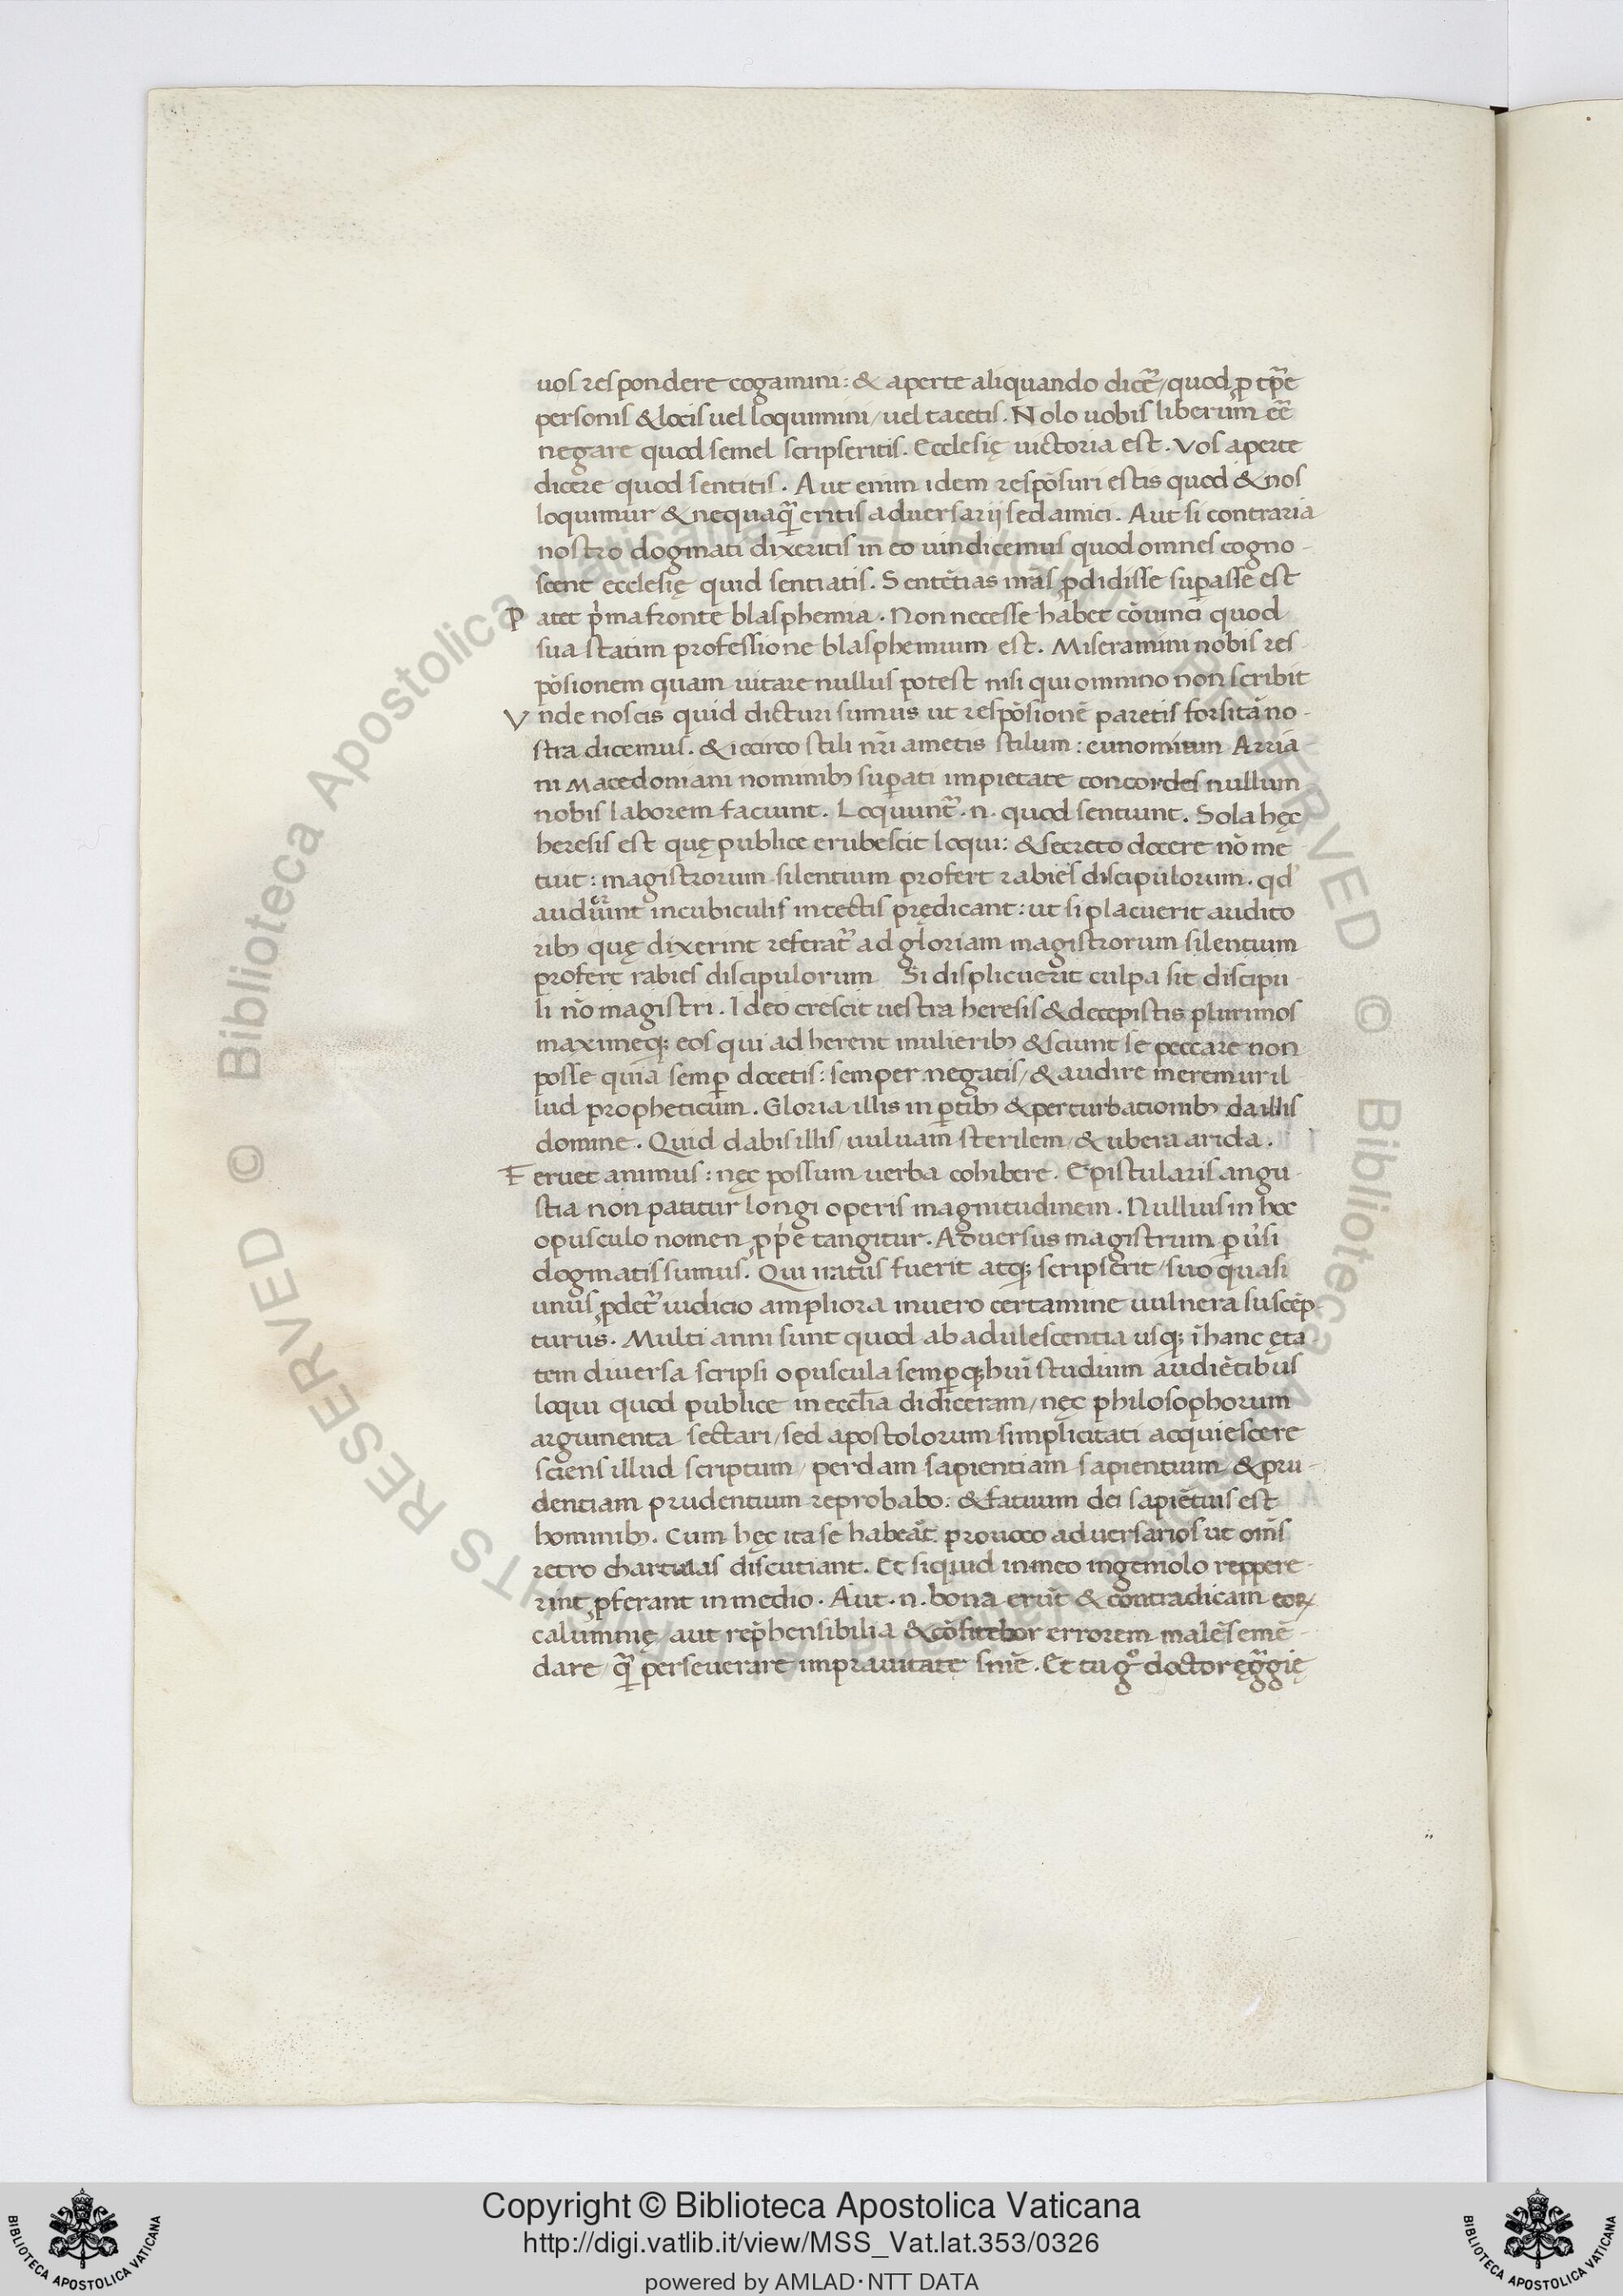 uos respondere cogamini: & aperte aliquando dicẽ/ quod ꝓ tp̃e
personis & locis uel loquimini/ uel tacetis. Nolo uobis liberum eẽ
negare quod semel scripseritis. Ecclesię uictoria est. Vos aperte
dicere quod sentitis. Aut enim idem respõsuri estis quod & nos
loquimur & nequaq̃ eritis aduersarij sed amici. Aut si contraria
nostro dogmati dixeritis in eo uindicemus quod omnes cogno-
scent ecclesię quid sentiatis. Sentẽtias uras ꝓdidisse suꝑasse est
Patet p̃ma fronte blasphemia. Non necesse habet cõuinci quod
sua statim professione blasphemium est. Miseramini nobis res-
põsionem quam uitare nullus potest nisi qui omnino non scribit
Vnde noscis quid dicturi sumus ut respõsionẽ paretis forsitã no-
stra dicemus. & iccirco stili nr̃i ametis stilum: eunomium Arria
ni Macedoniani nominibꝫ suꝑati impietate concordes nullum
nobis laborem faciunt. Loquunt᷑ .n. quod sentiunt. Sola hęc
heresis est quę publice erubescit loqui: & secreto docere nõ me
tiut: magistrorum silentium profert rabies discipulorum. qd̓
audierunt in cubiculis in tectis prędicant: ut si placuerit audito
ribꝫ quę dixerint referat᷑ ad gloriam magistrorum silentium
profert rabies discipulorum Si displicuerit culpa sit discipu
li nõ magistri. Ideo crescit uestra heresis & decepistis plurimos
maximeqꝫ eos qui adherent mulieribꝫ & sciunt se peccare non
posse quia semꝑ docetis: semper negatis/ & audire meremur il
lud propheticum. Gloria illis in ꝑtibꝫ & perturbationibꝫ da illis
domine. Quid dabis illis/ uuluam sterilem/ & ubera arida.
Feruet animus: nęc possum uerba cohibere. Epistularis angu
stia non patitur longi operis magnitudinem. Nullius in hoc
opusculo nomen ꝓp̃e tangitur. Aduersus magistrum ꝑu̓si
dogmatis sumus. Qui iratus fuerit atqꝫ scripserit/ suo quasi
unus ꝓdet᷑ iudicio ampliora in uero certamine uulnera suscẽp-
turus. Multi anni sunt quod ab adulescentia usqꝫ ĩ hanc ęta
tem diuersa scripsi opuscula semꝑqꝫ hui studium audiẽtibus
loqui quod publice in eccl̃ia didiceram/ nęc philosophorum
argumenta sectari/ sed apostolorum simplicitati acquiescere
sciens illud scriptum/ perdam sapientiam sapientium & pru-
dentiam prudentium reprobabo. & fatuum dei sapiẽtius est
hominibꝫ. Cum hęc ita se habeãt prouoco aduersarios ut om̃s
retro chartulas discutiant. Et siquid in meo ingeniolo reppere-
rint ꝓferant in medio. Aut .n. bona erũt & contradicam eoꝝ
calumnię aut rep̃hensibilia & cõfitebor errorem malẽs emẽ-
dare/ q̃ perseuerare in prauitate sñie. Et tu g̊ doctor ęg̃gię
Copyright © Biblioteca Apostolica Vaticana
http://digi.vatlib.it/view/MSS_Vat.lat.353/0326
powered by AMLAD·NTT DATA